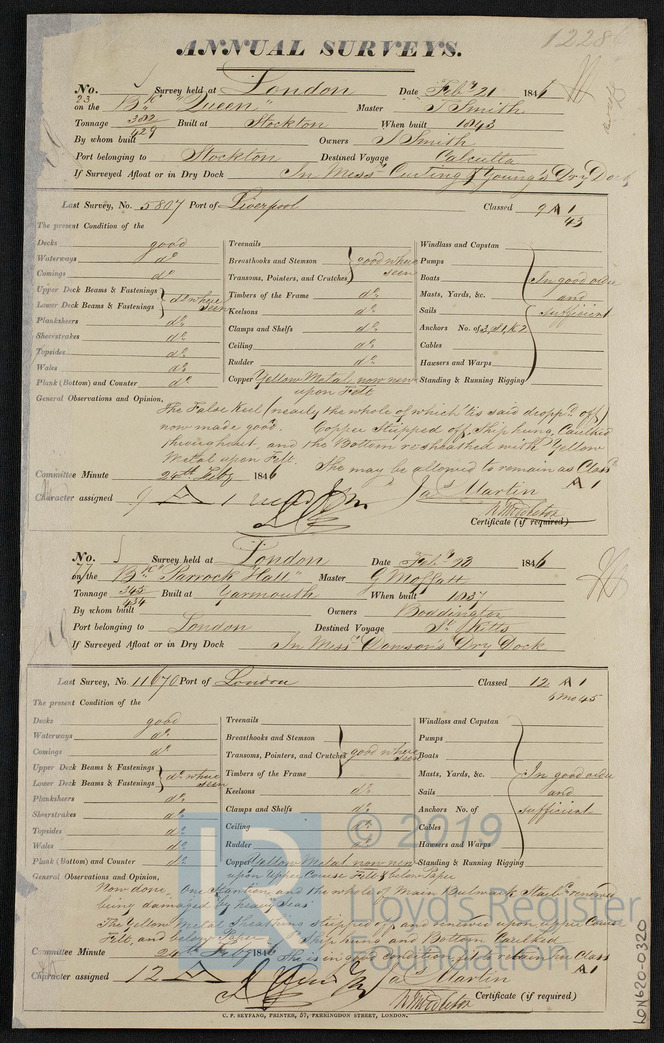 ANNUAL SURVEYS.
1228
No. 23 Survey held at London Date Feby 21 1846
on the Bk "Queen" Master T Smith
Tonnage 382/429 Built at Stockton When built 1843
By whom built Owners Smith
Port belonging to Stockton Destined Voyage Calcutta
If Surveyed Afloat or in Dry Dock In Messrs Curling & Young's Dry Dock
Last Survey, No. 5807 Port of Liverpool Classed 9 A 1
43
The present Condition of the
Decks good
Waterways do
Comings do
Upper Deck Beams & Fastenings
Lower Deck Beams & Fastenings do where seen
Planksheers do
Sheerstrakes do
Topsides do
Wales do
Plank (Bottom) and Counter do
Treenails
Breasthooks and Stemson
Transoms, Pointers, and Crutches good where seen
Timbers of the Frame do
Keelsons do
Clamps and Shelfs do
Ceiling do
Rudder do
Copper Yellow Metal now new
upon Felt
Windlass and Capstan
Pumps
Boats
Masts, Yards, &c.
Sails
Anchors No. of
Cables
Hawsers and Warps
Standing & Running Rigging
In good order
and
sufficient
General Observations and Opinion,
The False Keel (nearly the whole of which tis said droppd off)
now made good. Copper Stripped off, Ship hung, Caulked
throughout, and the Bottom resheathed with Yellow
Metal upon Felt. She may be allowed to remain as Classd
A 1
Committee Minute 24th Feby 1846
Character assigned 9 A 1
Jas Martin
Certificate (if required)
No. 77 Survey held at London Date Feby 23 1846
on the Bk "Parrock Hall" Master G Moffatt
Tonnage 345/434 Built at Yarmouth When built 1837
By whom built Owners Boddington
Port belonging to London Destined Voyage St Kitts
If Surveyed Afloat or in Dry Dock In Messrs Dowson's Dry Dock
Last Survey, No. 11676 Port of London Classed 12 A 1
6 mo 45
The present Condition of the
Decks good
Waterways do
Comings do
Upper Deck Beams & Fastenings
Lower Deck Beams & Fastenings do where seen
Planksheers do
Sheerstrakes do
Topsides do
Wales do
Plank (Bottom) and Counter do
Treenails
Breasthooks and Stemson
Transoms, Pointers, and Crutches good where seen
Timbers of the Frame
Keelsons do
Clamps and Shelfs do
Ceiling do
Rudder do
Copper Yellow Metal now new
upon Upper Course Felt & below Paper
Windlass and Capstan
Pumps
Boats
Masts, Yards, &c.
Sails
Anchors No. of
Cables
Hawsers and Warps
Standing & Running Rigging
In good order
and
sufficient
General Observations and Opinion,
Now done, One Stantion, and the whole of Main Bulwark renewed
being damaged by heavy Seas
The Yellow Metal Sheathing stripped off and renewed upon upper Course
Felt, and below Paper. Ship hung and Bottom Caulked
She is in good condition, fit to retain her Class
A 1
Committee Minute 24th Feby 1846
Character assigned 12 A 1
Jas Martin
Certificate (if required)
C. F. SEYFANG, PRINTER, 57, FARRINGDON STREET, LONDON.
LON620-0320
© 2019
Lloyd's Register
Foundation
LR